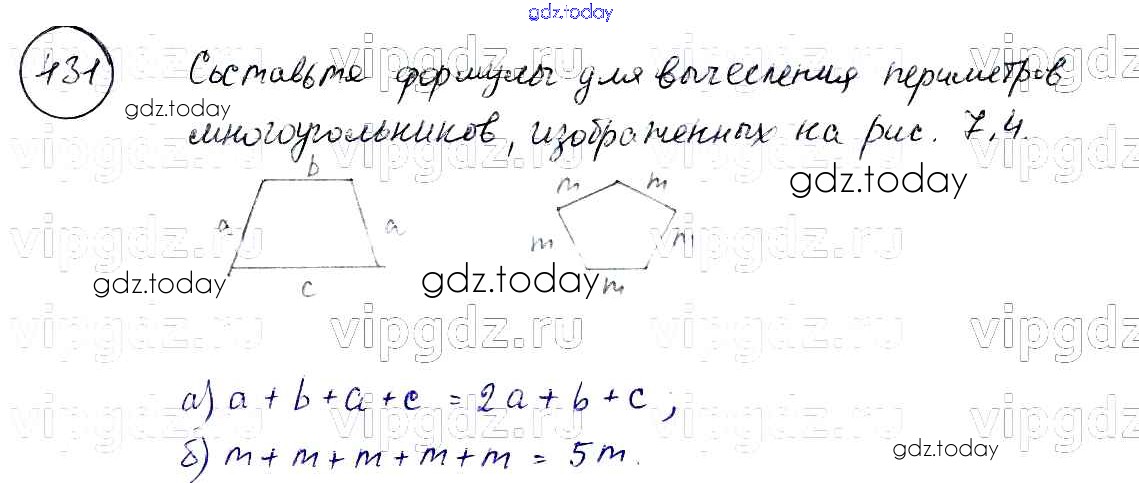 gdz.today
131 Составьте формулы для вычесления периметров
gdz.today
многоугольников, изображенных на рис. 7,4.
gdz.today
b
m m
a a
m m
c
m
gdz.today
gdz.today
vipgdz.ru
а) a + b + a + c = 2a + b + c ;
б) m + m + m + m + m = 5m.
gdz.today